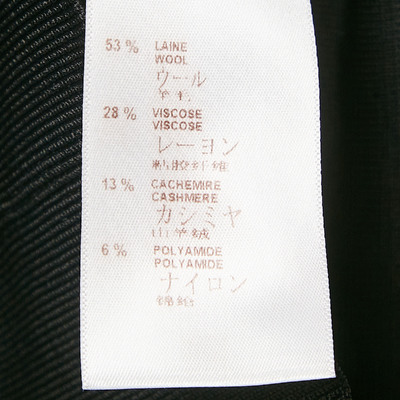 53 % LAINE
WOOL
ウール
羊毛
28 % VISCOSE
VISCOSE
レーヨン
粘胶纤维
13 % CACHEMIRE
CASHMERE
カシミヤ
山羊绒
6 % POLYAMIDE
POLYAMIDE
ナイロン
锦纶